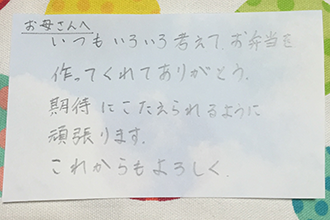 お母さんへ
いつもいろいろ考えて、お弁当を
作ってくれてありがとう。
期待にこたえられるように
頑張ります。
これからもよろしく。